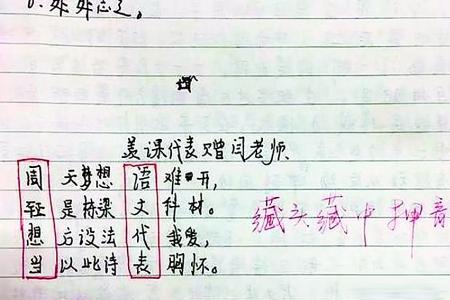 美课代表赠闫老师
周天梦想语难开,
是栋梁文科材。
藏头藏中押
想方设法代我爱,
当以此诗表胸怀。